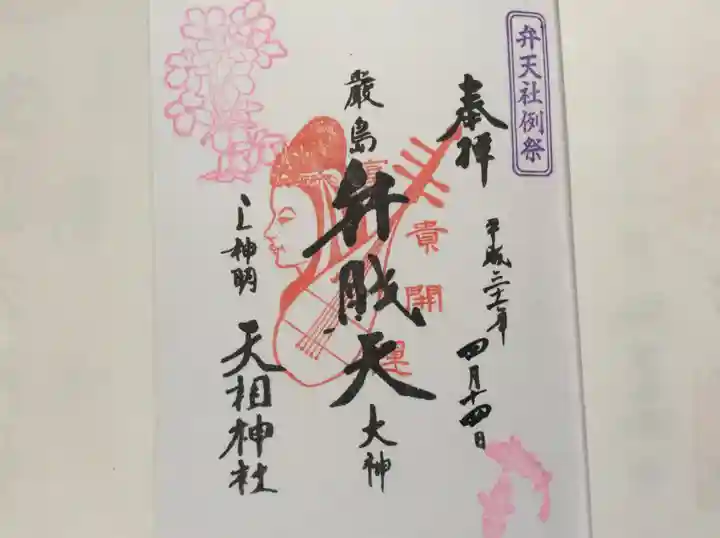 弁天社例祭
奉拝
平成三十一年
四月十四日
富貴開運
厳島
弁財天
大神
心神明
天祖神社